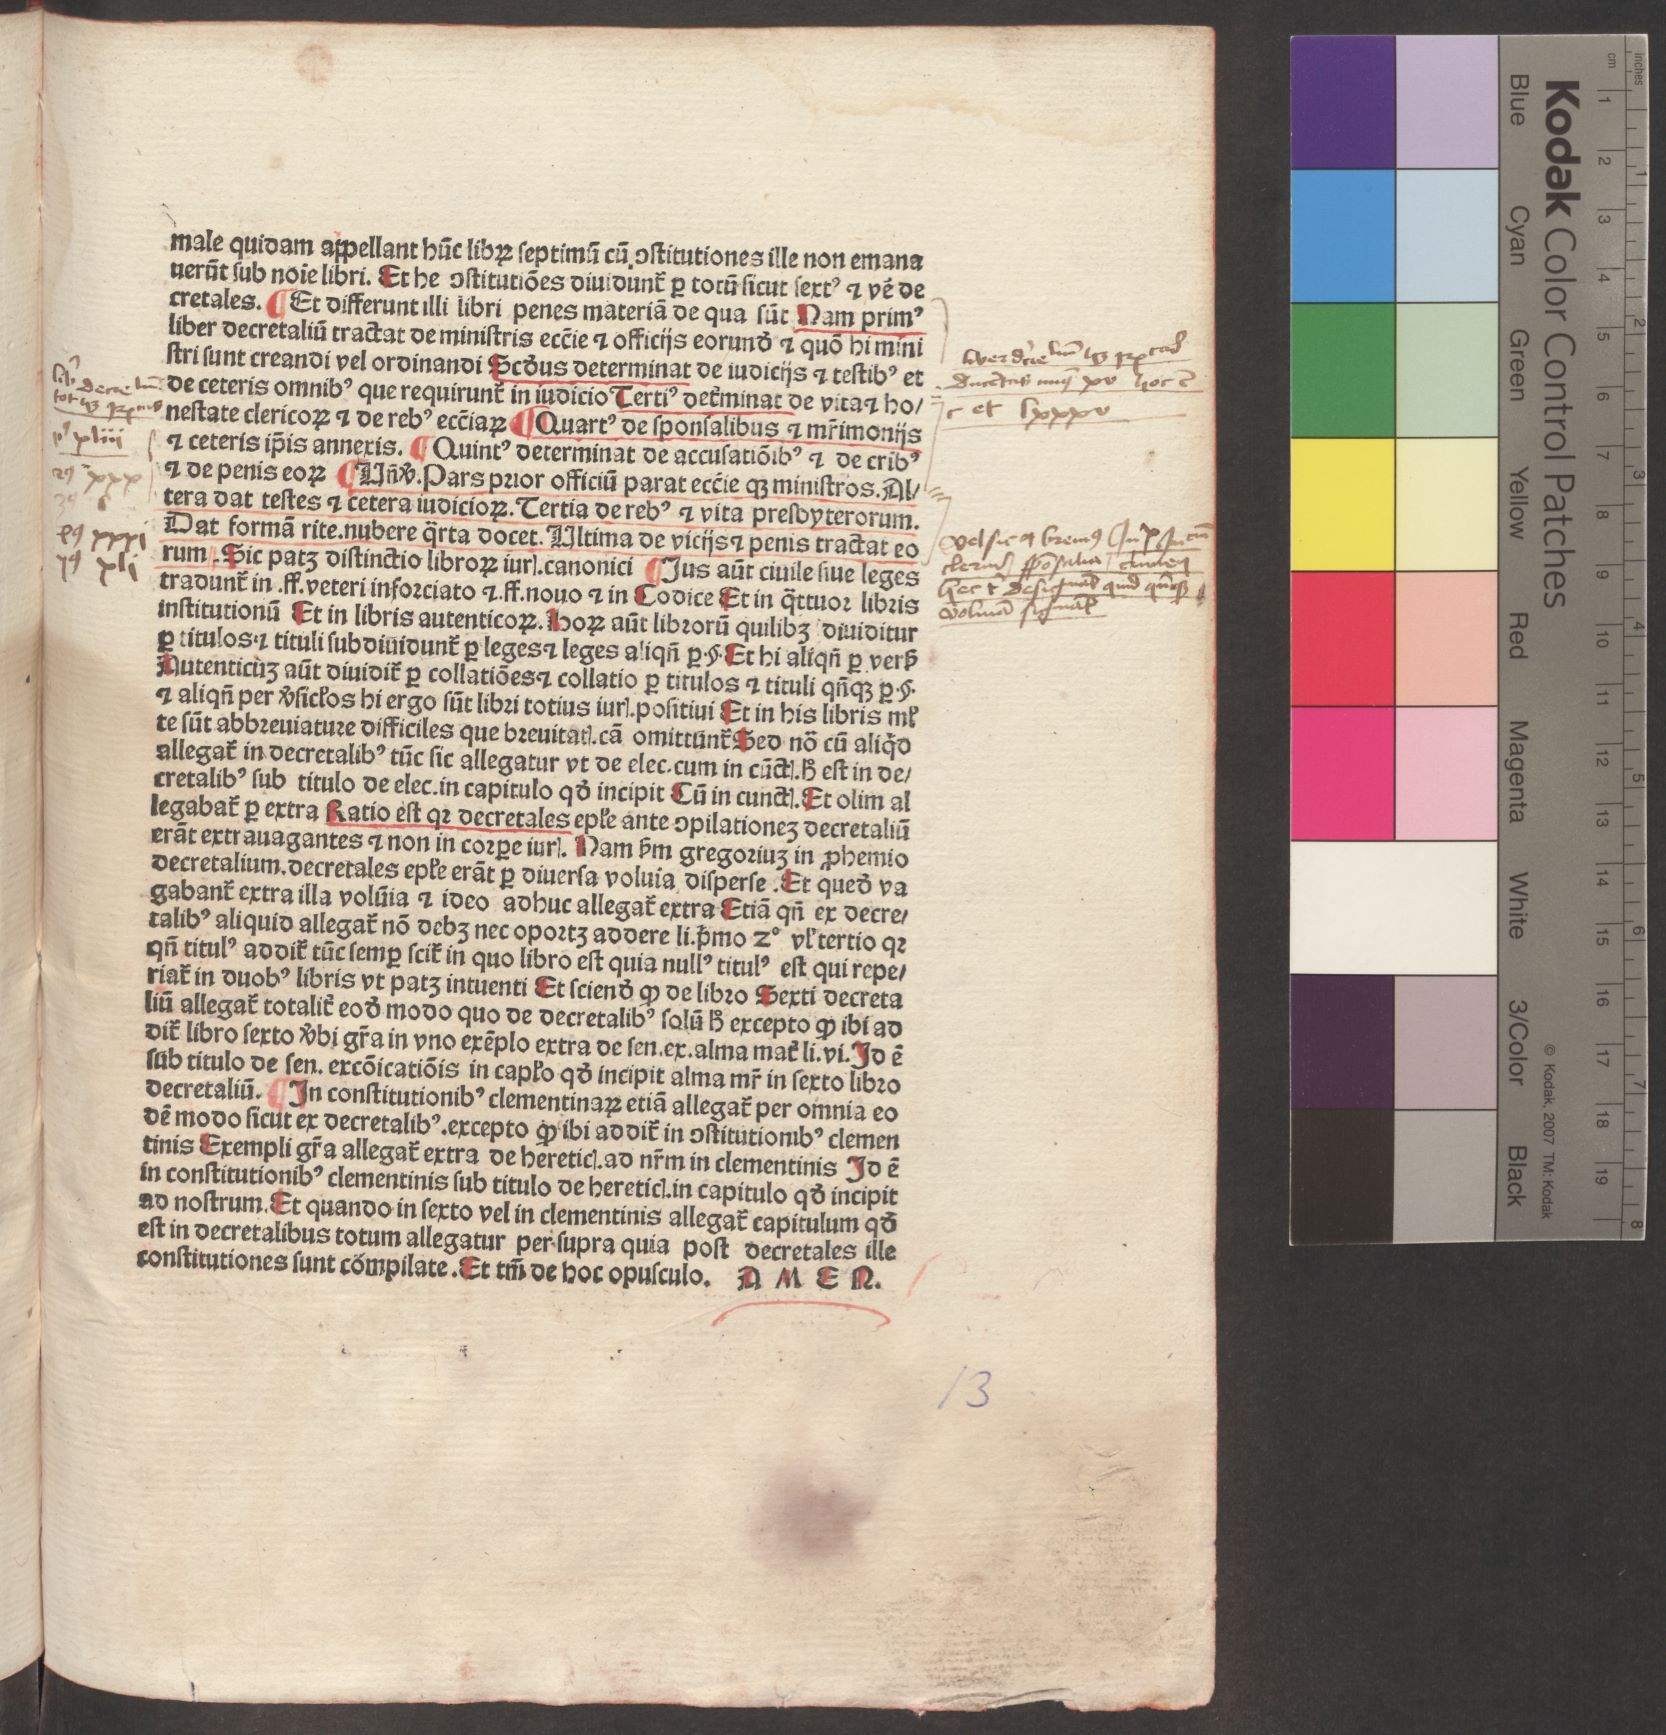 male quidam appellant hūc libꝝ septimū cū ↄstitutiones ille non emana
uerūt sub noīe libri. Et he ↄstitutiōes diuidunt̄ ꝑ totū sicut sextꝰ ⁊ vē de
cretales. ¶ Et differunt illi libri penes materiā de qua sūt Nam primꝰ
liber decretaliū tractat de ministris ecc̄ie ⁊ officijs eorund̄ ⁊ quō hi mini
stri sunt creandi vel ordinandi Scd̄us determinat de iudicijs ⁊ testibꝰ et
de ceteris omnibꝰ que requirunt̄ in iudicio Tertiꝰ det̄minat de vita ⁊ ho/
nestate clericoꝝ ⁊ de rebꝰ ecc̄iaꝝ ¶ Quartꝰ de sponsalibus ⁊ mr̄imonijs
⁊ ceteris ip̄is annexis. ¶ Quintꝰ determinat de accusatiōibꝰ ⁊ de cribꝰ
⁊ de penis eoꝝ ¶ Vn̄ v̄. Pars prior officiū parat ecc̄ie qꝫ ministros. Al/
tera dat testes ⁊ cetera iudicioꝝ. Tertia de rebꝰ ⁊ vita presbyterorum.
Dat formā rite. nubere q̄rta docet. Vltima de vicijs ⁊ penis tractat eo
rum. Sic patꝫ distinctio libroꝝ iurꝭ. canonici ¶ Jus aūt ciuile siue leges
tradunt̄ in .ff. veteri inforciato ⁊ .ff. nouo ⁊ in Codice Et in q̄ttuor libris
institutionū Et in libris autenticoꝝ. Hoꝝ aūt librorū quilibꝫ diuiditur
ꝑ titulos ⁊ tituli subdiuidunt̄ ꝑ leges ⁊ leges aliqn̄ ꝑ .§. Et hi aliqn̄ ꝑ vers̄
Autenticūꝫ aūt diuidit̄ ꝑ collatiōes ⁊ collatio ꝑ titulos ⁊ tituli qn̄qꝫ ꝑ .§.
⁊ aliqn̄ per v̄sicl̄os hi ergo sūt libri totius iurꝭ. positiui Et in his libris ml̄
te sūt abbreuiature difficiles que breuitatꝭ. cā omittūnt̄ Sed nō cū aliqd̄
allegat̄ in decretalibꝰ tūc sic allegatur vt de elec. cum in cūctꝭ. h̄ est in de/
cretalibꝰ sub titulo de elec. in capitulo qd̄ incipit Cū in cunctꝭ. Et olim al
legabat̄ ꝑ extra Ratio est qꝛ decretales epl̄e ante ↄpilationeꝫ decretaliū
erāt extrauagantes ⁊ non in corpe iurꝭ. Nam s̄m gregoriuꝫ in ꝓhemio
decretalium. decretales epl̄e erāt ꝑ diuersa voluia disperse. Et qued̄ va
gabant̄ extra illa volūia ⁊ ideo adhuc allegat̄ extra Etiā qn̄ ex decre/
talibꝰ aliquid allegat̄ nō debꝫ nec oportꝫ addere li. p̄mo 2° vl̄ tertio qꝛ
qn̄ titulꝰ addit̄ tūc semꝑ scit̄ in quo libro est quia nullꝰ titulꝰ est qui repe/
riat̄ in duobꝰ libris vt patꝫ intuenti Et sciend̄ ꝙ de libro Sexti decreta
liū allegat̄ totalit̄ eod̄ modo quo de decretalibꝰ solū h̄ excepto ꝙ ibi ad
dit̄ libro sexto v̄bi gr̄a in vno exēplo extra de sen. ex. alma mat̄ li. vi. Jd ē
sub titulo de sen. excōicatiōis in capl̄o qd̄ incipit alma mr̄ in sexto libro
decretaliū. ¶ Jn constitutionibꝰ clementinaꝝ etiā allegat̄ per omnia eo
dē modo sicut ex decretalibꝰ. excepto ꝙ ibi addit̄ in ↄstitutionibꝰ clemen
tinis Exempli gr̄a allegat̄ extra de hereticꝭ. ad nr̄m in clementinis Jd ē
in constitutionibꝰ clementinis sub titulo de hereticꝭ. in capitulo qd̄ incipit
ad nostrum. Et quando in sexto vel in clementinis allegat̄ capitulum qd̄
est in decretalibus totum allegatur per supra quia post decretales ille
constitutiones sunt cōmpilate. Et tm̄ de hoc opusculo. A M E N.
et lxxxv
pꝰ xliii
xxx
xxxi
xli
13
Kodak Color Control Patches
Blue Cyan Green Yellow Red Magenta White 3/Color Black
© Kodak, 2007 TM: Kodak
inches 1 2 3 4 5 6 7 8
cm 1 2 3 4 5 6 7 8 9 10 11 12 13 14 15 16 17 18 19